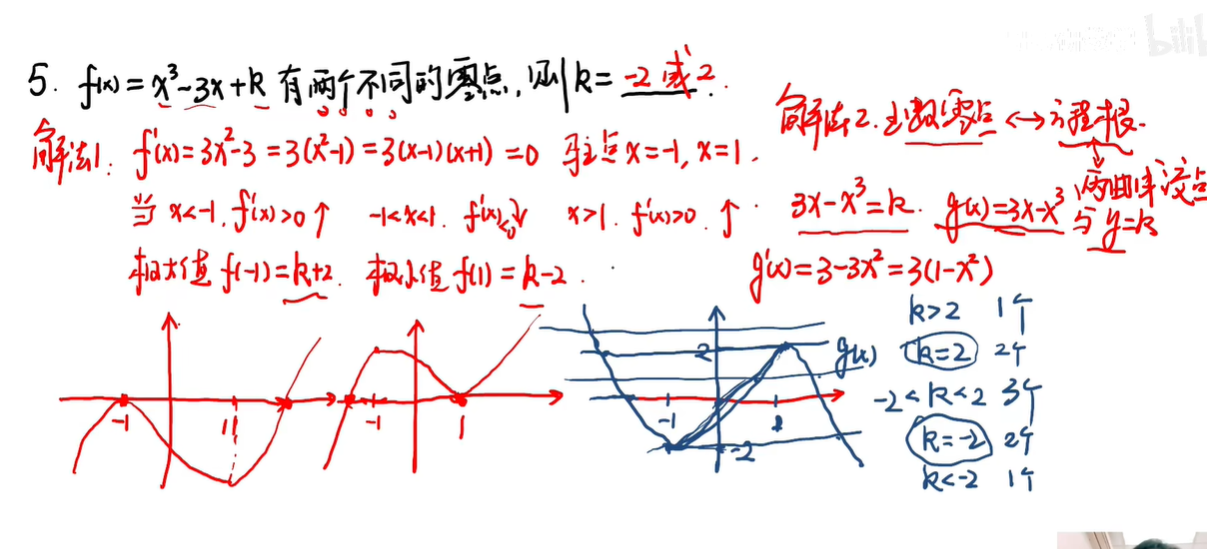 5. f(x)=x³-3x+k 有两个不同的零点,则k= -2或2.
解法1: f'(x)=3x²-3=3(x²-1)=3(x-1)(x+1)=0 驻点x=-1, x=1.
当 x<-1. f'(x)>0 ↑ -1<x<1. f'(x)<0 ↓ x>1. f'(x)>0. ↑
极大值 f(-1)=k+2. 极小值 f(1)=k-2.
-1 1
-1 1
解法2. 函数零点 ↔ 方程根.
↕
两曲线交点
3x-x³=k. g(x)=3x-x³ 与 y=k
g'(x)=3-3x²=3(1-x²)
2 g(x)
-1 1
-2
k>2 1个
k=2 2个
-2<k<2 3个
k=-2 2个
k<-2 1个
bilibili